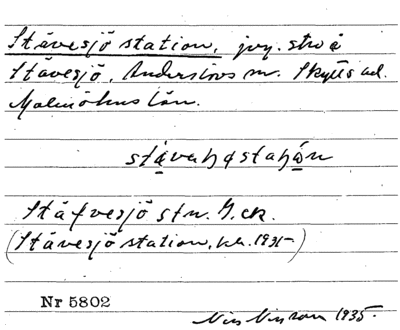 Stävesjö station, jvg. stn å
Stävesjö, Anderslövs sn. Skytts hd.
Malmöhus län.
Stäfvesjö stn. G.ek.
(Stävesjö station, ka. 1931-)
Nr 5802
Nils Nilsson 1935.